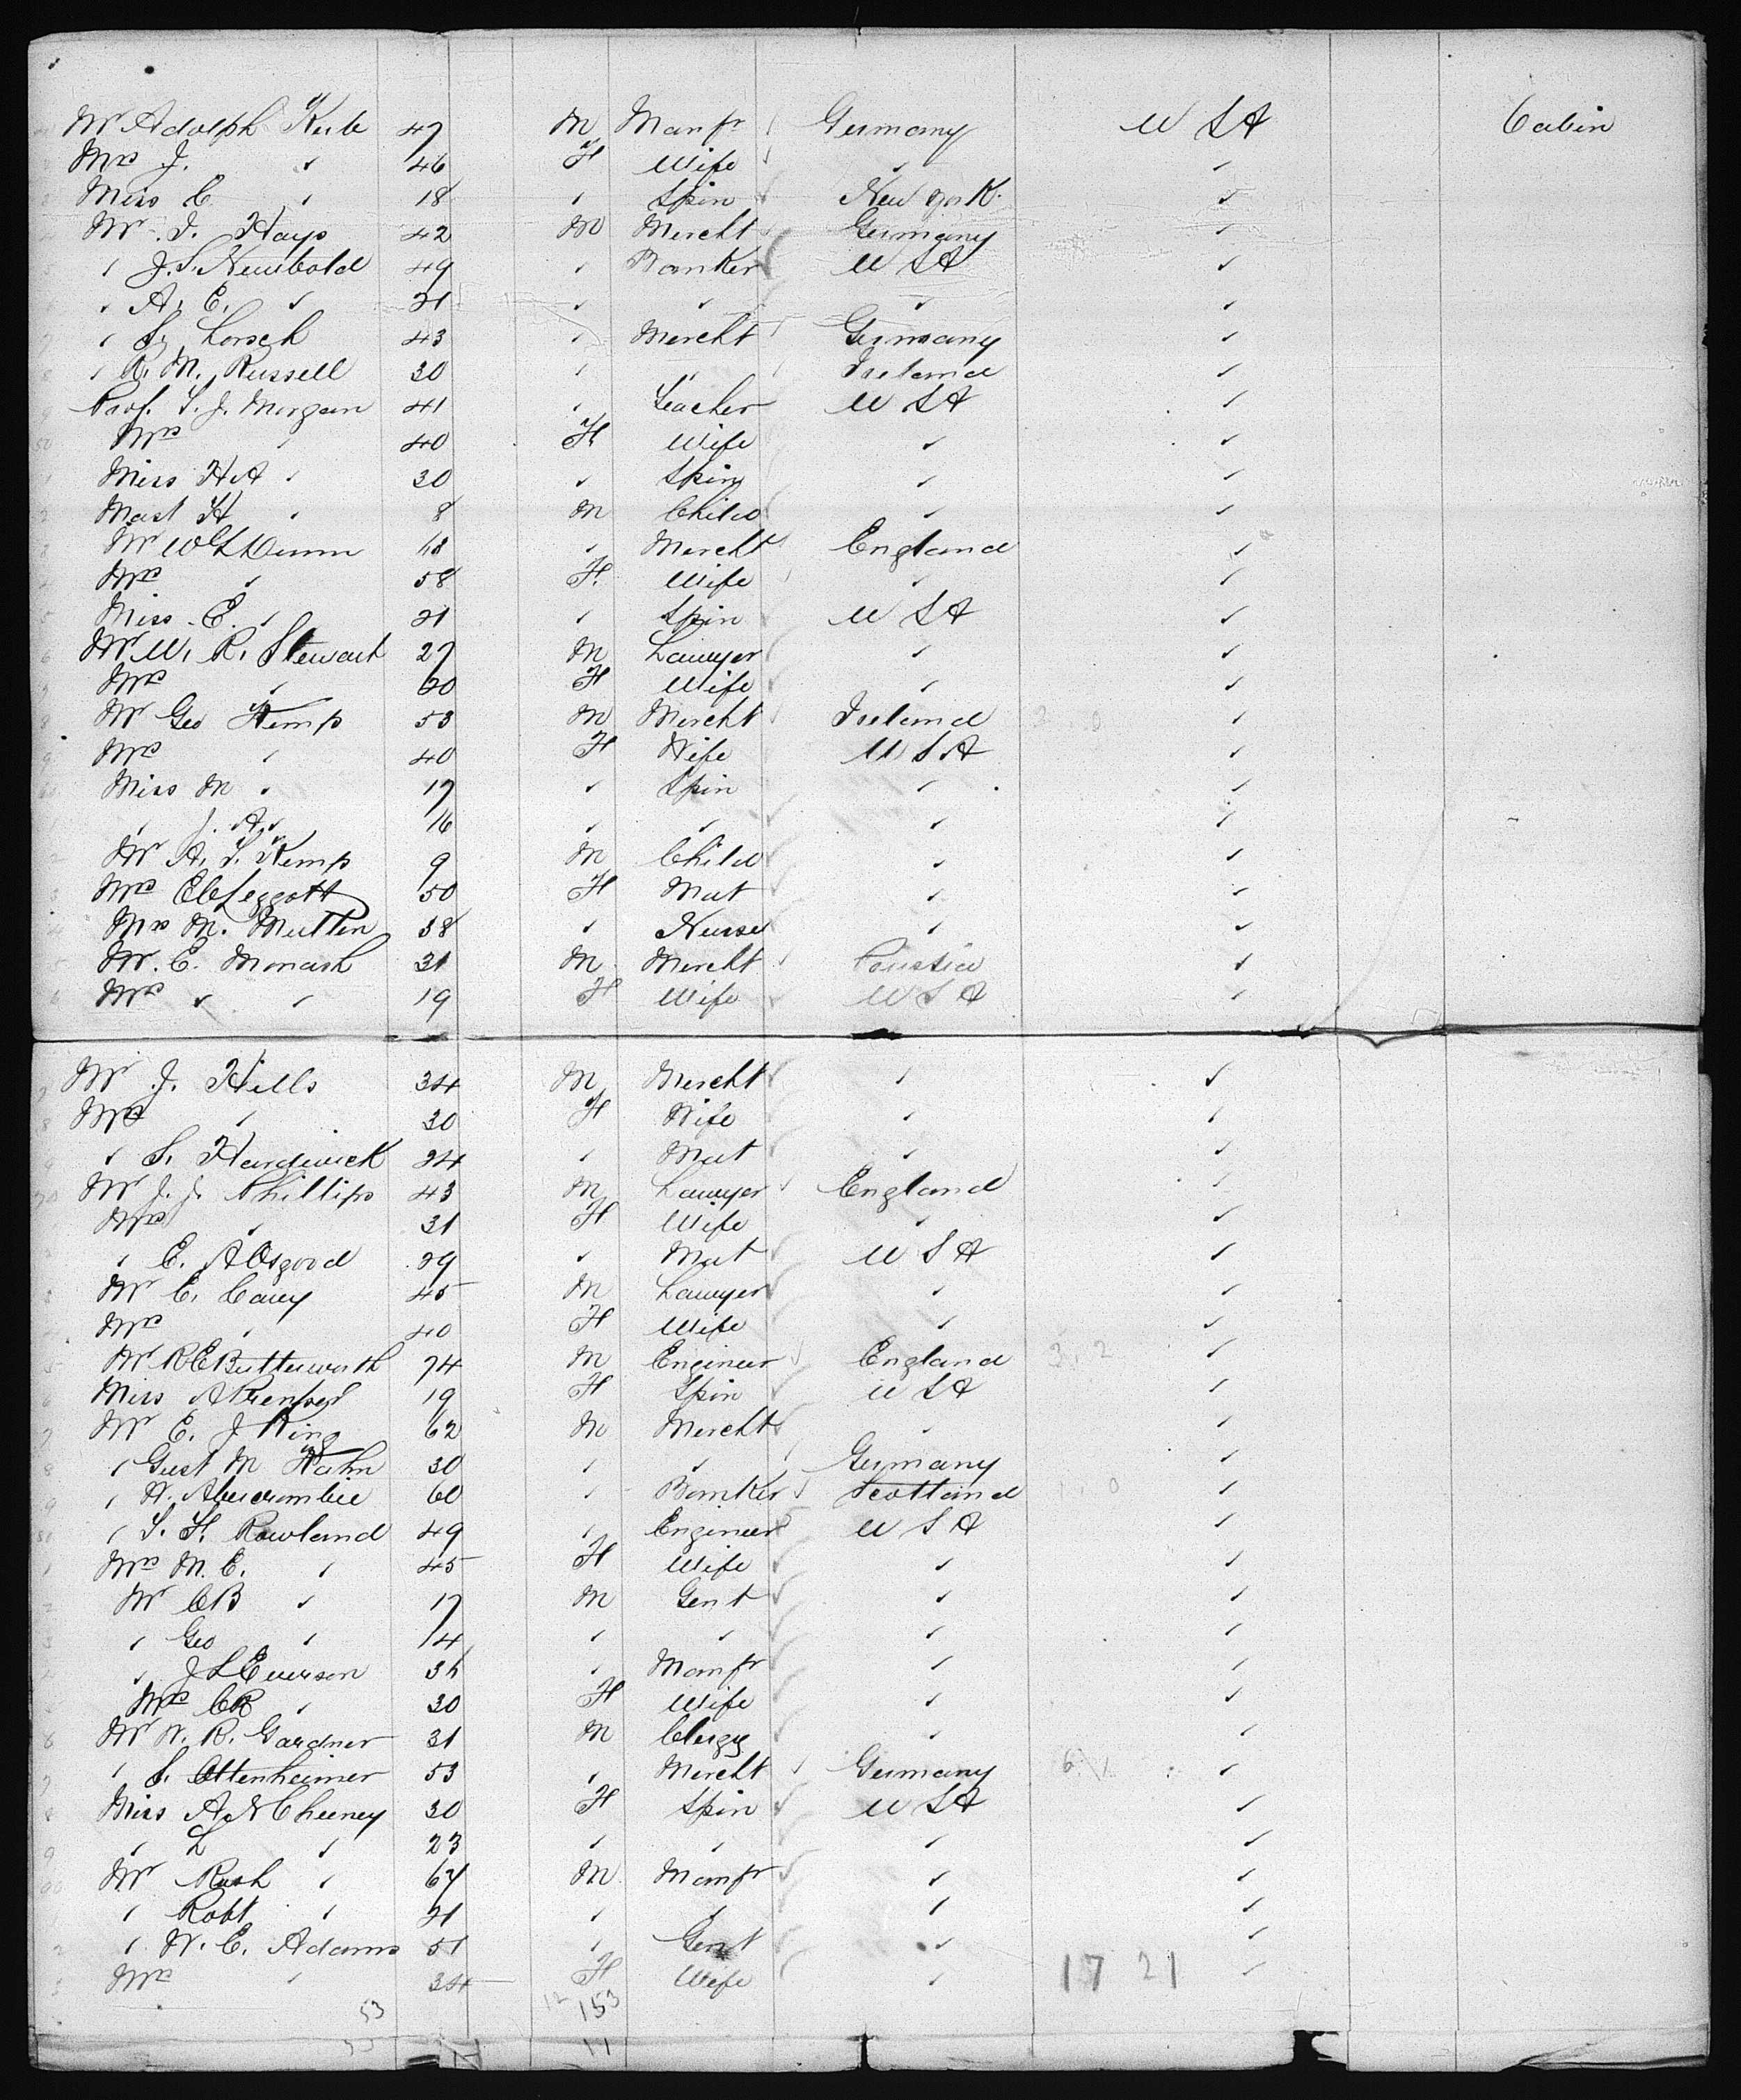 Mr Adolph Kerbe 47 M Manfr Germany U S A Cabin
Mrs J. " 46 F Wife " "
Miss C " 18 " Spin New York "
Mr. I. Hays 42 M Mercht Germany "
" J. S. Newbold 49 " Banker U S A "
" A. E. " 21 " " " "
" S. Lorsch 43 " Mercht Germany "
" R. M. Russell 30 " " Ireland "
Prof. T. J. Morgan 41 " Teacher U S A "
Mrs " 40 F Wife " "
Miss H A " 30 " Spin " "
Mast H " 8 M Child " "
Mr W G Dunn 68 " Mercht England "
Mrs " 58 F. Wife " "
Miss E. " 21 " Spin U S A "
Mr W. R. Stewart 27 M Lawyer " "
Mrs " 20 F Wife " "
Mr Geo Kemp 53 M Mercht Ireland "
Mrs " 40 F Wife U S A "
Miss M " 17 " Spin " "
" J. A. " 16 " " " "
Mr A. T. Kemp 9 M Child " "
Mrs E C Leggott 50 F Mat " "
Mrs M. Mullin 38 " Nurse " "
Mr. E. Monash 31 M Mercht Prussia "
Mrs " " 19 F Wife U S A "
Mr J. Hills 34 M Mercht " "
Mrs " 30 F Wife " "
" S. Hardwick 24 " Mat " "
Mr J. J. Phillips 43 M Lawyer England "
Mrs " 31 F Wife " "
" E. A Osgood 29 " Mat U S A "
Mr C. Cary 45 M Lawyer " "
Mrs " 40 F Wife " "
Mr R E Butterworth 74 M Engineer England "
Miss A 19 F Spin U S A "
Mr E. J King 62 M Mercht " "
" Gust M Hahn 30 " " Germany "
" W. Abercrombie 60 " Banker Scotland "
" T. F. Rowland 49 " Engineer U S A "
Mrs M. E. " 45 F Wife " "
Mr C B " 17 M Gent " "
" Geo " 14 " " " "
" J L Everson 36 " Manfr " "
Mrs C R " 30 F Wife " "
Mr W. R. Gardner 31 M Clergy " "
" S. Ottenheimer 53 " Mercht Germany "
Miss A N Cheeney 30 F Spin U S A "
" L " 23 " " " "
Mr Rush " 64 M Manfr " "
" Robt " 21 " " " "
" W. E. Adams 51 " Gent " "
Mrs " 34 F Wife " 17 21 "
53 12 153
11